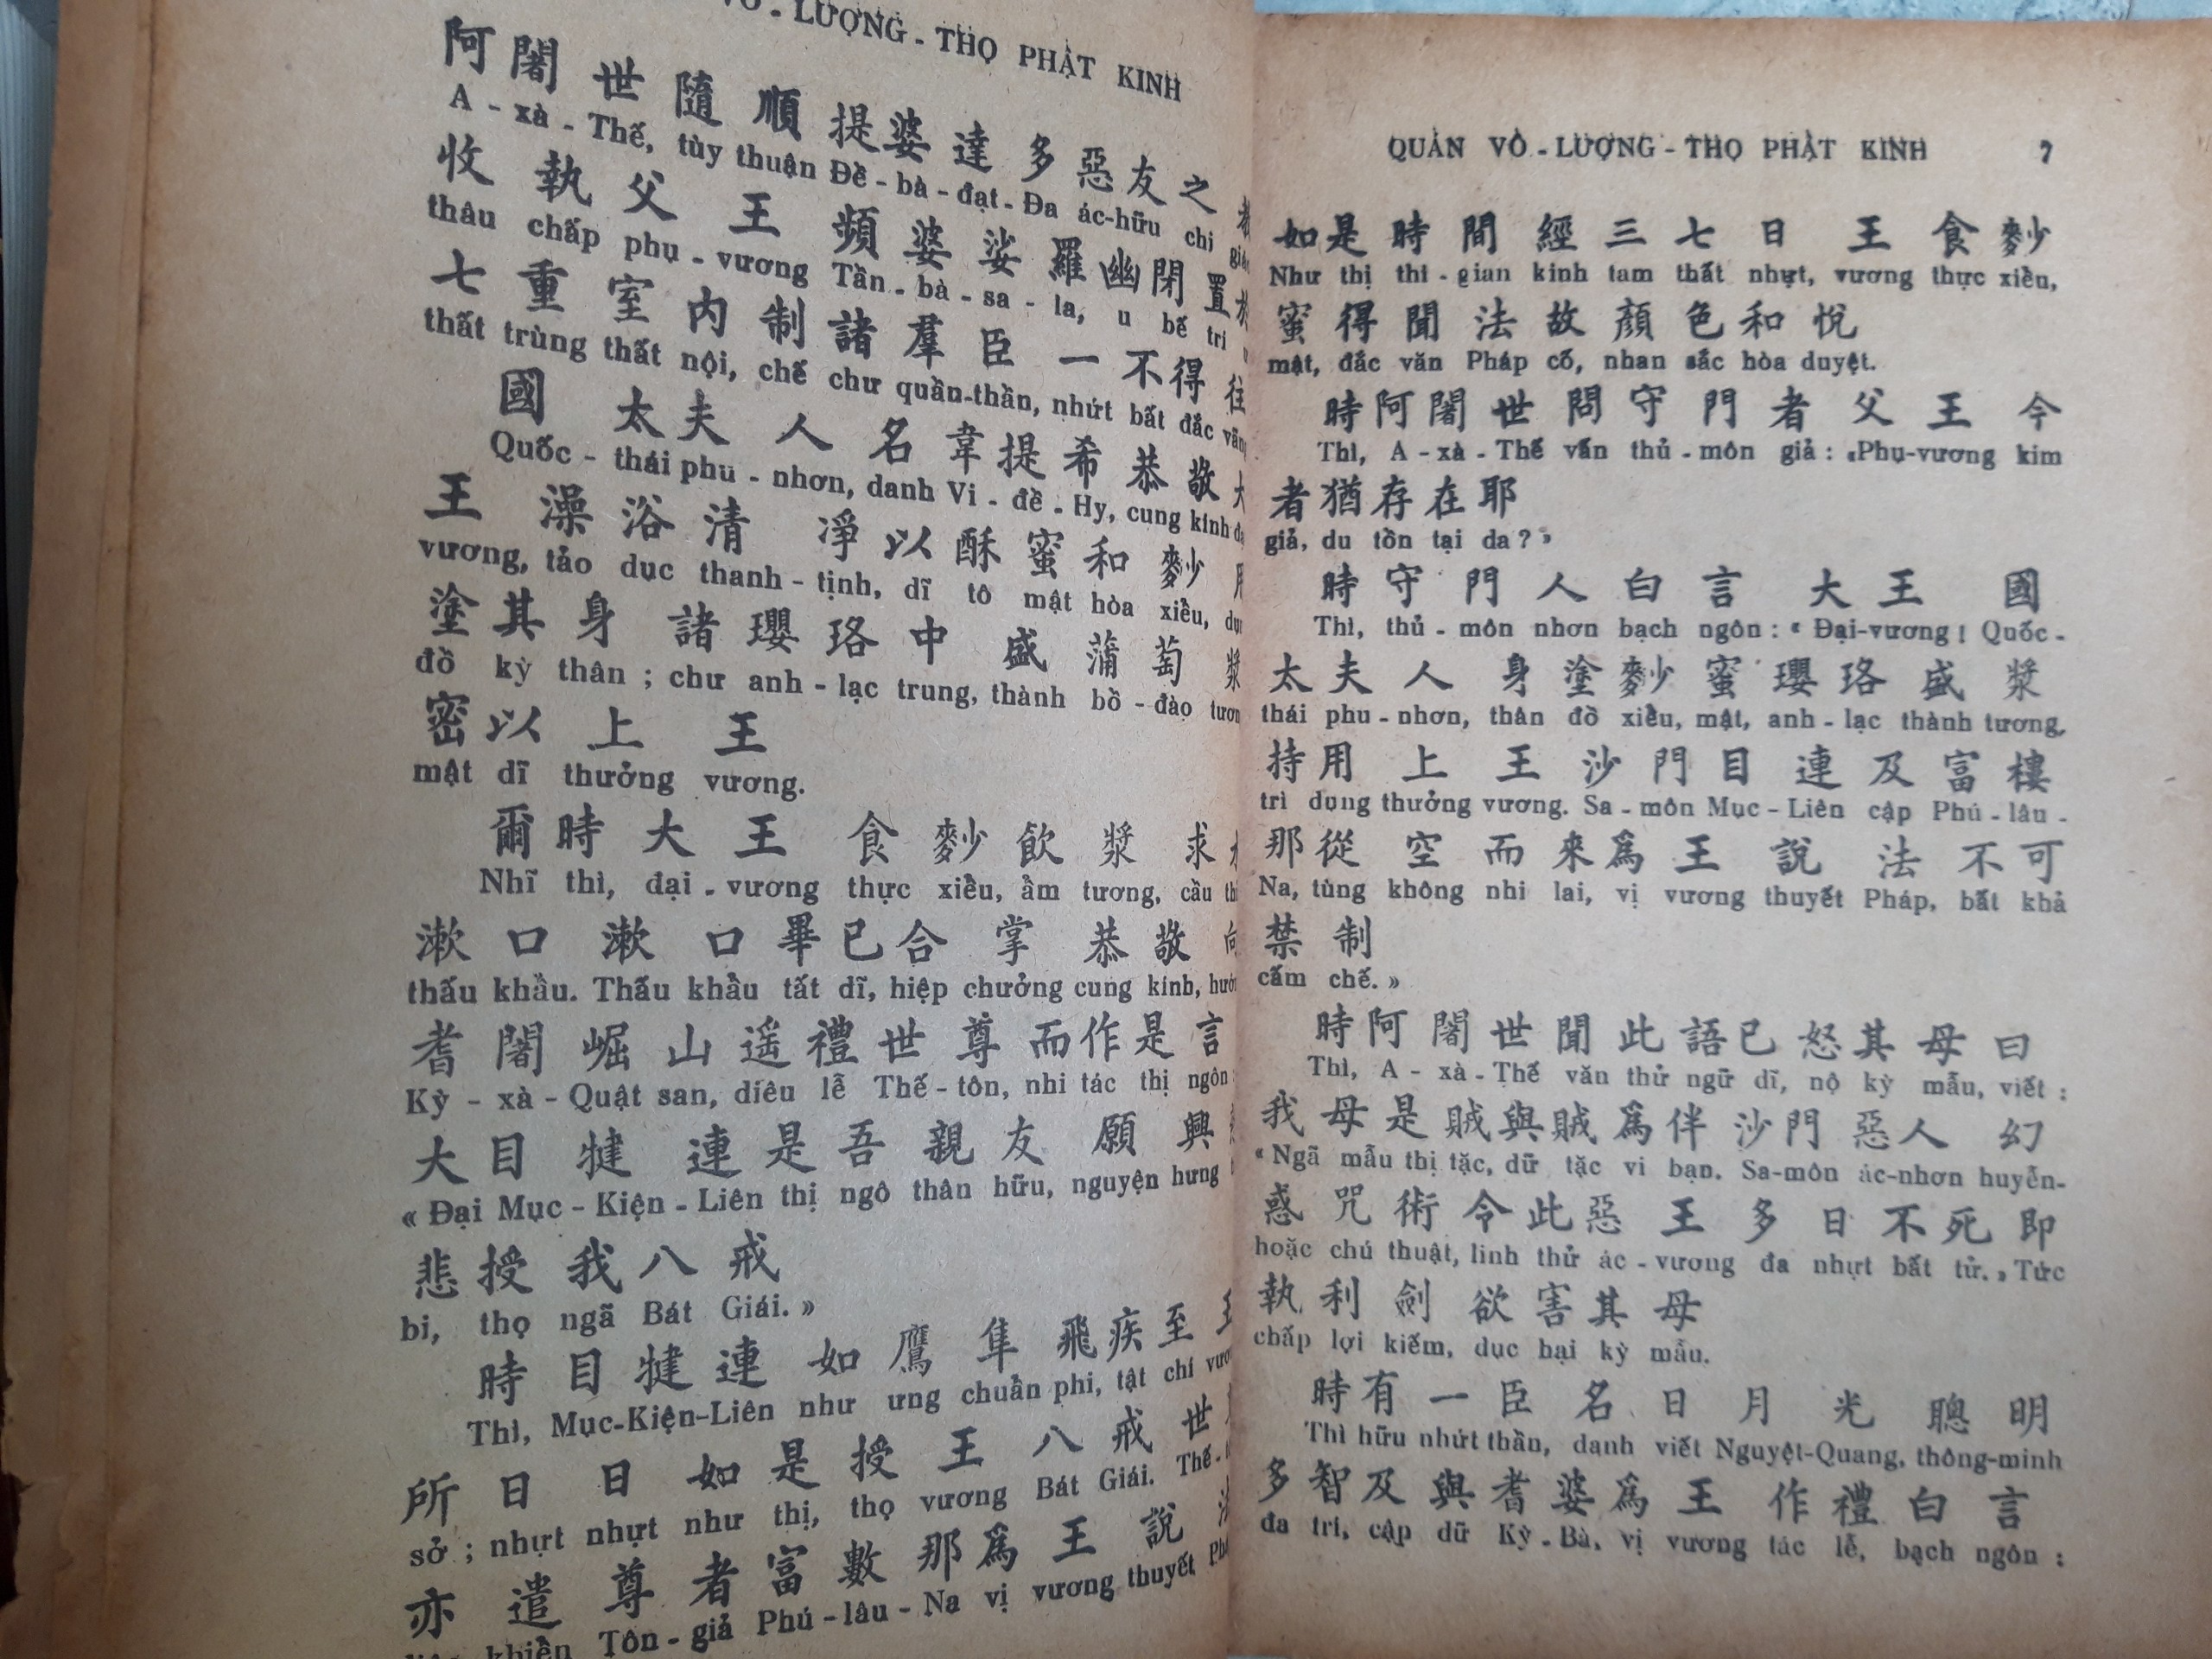 LƯỢNG - THỌ PHẬT KINH
阿闍世隨順提婆達多惡友之
A - xà - Thế, tùy thuận Đề - bà - đạt - Đa ác-hữu chi
收執父王頻婆娑羅幽閉置
thâu chấp phụ - vương Tần - bà - sa - la, u bế trí
七重室內制諸羣臣一不得往
thất trùng thất nội, chế chư quần-thần, nhứt bất đắc
國太夫人名韋提希恭敬
Quốc - thái phu - nhơn, danh Vi - đề - Hy, cung kính
王澡浴清淨以酥蜜和麨
vương, tảo dục thanh - tịnh, dĩ tô mật hòa xiểu,
塗其身諸瓔珞中盛蒲萄漿
đồ kỳ thân ; chư anh - lạc trung, thành bồ - đào
密以上王
mật dĩ thưởng vương.
爾時大王食麨飲漿求
Nhĩ thì, đại - vương thực xiểu, ẩm tương, cầu
漱口漱口畢已合掌恭敬
thấu khẩu. Thấu khẩu tất dĩ, hiệp chưởng cung kính,
耆闍崛山遥禮世尊而作是言
Kỳ - xà - Quật san, diêu lễ Thế - tôn, nhi tác thị ngôn
大目犍連是吾親友願興
« Đại Mục - Kiện - Liên thị ngô thân hữu, nguyện hưng
悲授我八戒
bi, thọ ngã Bát Giái. »
時目犍連如鷹隼飛疾至
Thì, Mục-Kiện-Liên như ưng chuẩn phi, tật chí
所日日如是授王八戒世
sở ; nhựt nhựt như thị, thọ vương Bát Giái. Thế -
亦遣尊者富數那爲王說
khiển Tôn - giả Phú - lâu - Na vị vương thuyết
QUÁN VÔ - LƯỢNG - THỌ PHẬT KINH 7
如是時間經三七日王食麨
Như thị thì - gian kinh tam thất nhựt, vương thực xiểu,
蜜得聞法故顏色和悅
mật, đắc văn Pháp cố, nhan sắc hòa duyệt.
時阿闍世問守門者父王今
Thì, A - xà - Thế vấn thủ - môn giả : «Phụ-vương kim
者猶存在耶
giả, du tồn tại da ? »
時守門人白言大王國
Thì, thủ - môn nhơn bạch ngôn : « Đại-vương ! Quốc -
太夫人身塗麨蜜瓔珞盛漿
thái phu - nhơn, thân đồ xiểu, mật, anh - lạc thành tương,
持用上王沙門目連及富樓
trì dụng thưởng vương. Sa - môn Mục - Liên cập Phú - lâu -
那從空而來爲王說法不可
Na, tùng không nhi lai, vị vương thuyết Pháp, bất khả
禁制
cấm chế. »
時阿闍世聞此語已怒其母曰
Thì, A - xà - Thế văn thử ngữ dĩ, nộ kỳ mẫu, viết :
我母是賊與賊爲伴沙門惡人幻
« Ngã mẫu thị tặc, dữ tặc vi bạn. Sa-môn ác-nhơn huyễn-
惑咒術令此惡王多日不死即
hoặc chú thuật, linh thử ác - vương đa nhựt bất tử. » Tức
執利劍欲害其母
chấp lợi kiếm, dục hại kỳ mẫu.
時有一臣名曰月光聰明
Thì hữu nhứt thần, danh viết Nguyệt-Quang, thông-minh
多智及與耆婆爲王作禮白言
đa trí, cập dữ Kỳ - Bà, vị vương tác lễ, bạch ngôn :